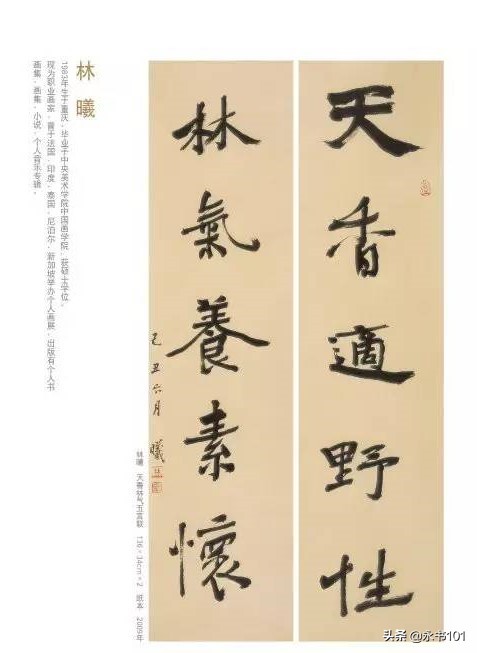 天香適野性
林氣養素懷
己丑六月 曦
林曦 天香林气五言联 136×34cm×2 纸本 2009年
林曦
1983年生于重庆，毕业于中央美术学院中国画学院，获硕士学位。
现为职业画家，曾于法国、印度、泰国、尼泊尔、新加坡举办个人画展，出版有个人书
画集、画集、小说、个人音乐专辑。
头条 @永书101